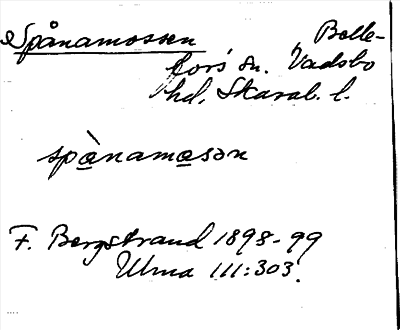 Spånamossen Bälle-
fors sn. Vadsbo
hd, Skarab. l.
spànamasən
F. Bergstrand 1898-99
Ulma 111:303.